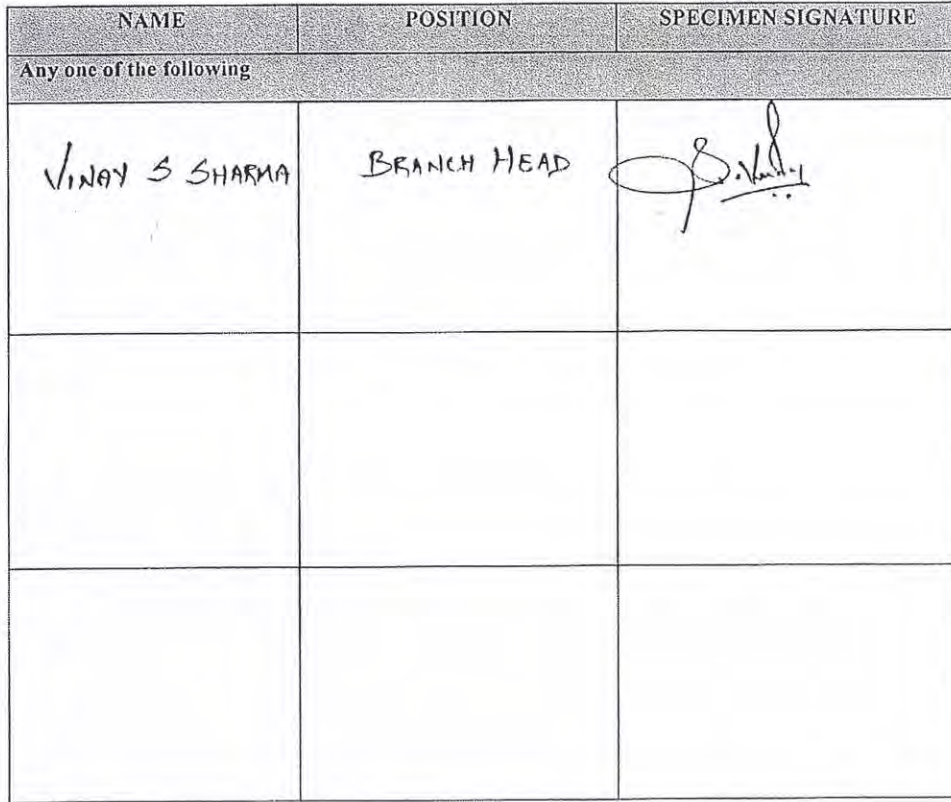 NAME POSITION SPECIMEN SIGNATURE
Any one of the following
VINAY S SHARMA BRANCH HEAD